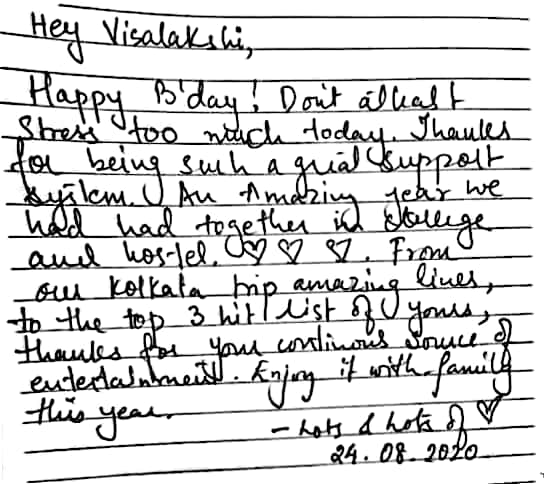 Hey Visalakshi,
Happy B'day! Don't atleast
Stress too much today. Thanks
for being such a great support
system. An Amazing year we
had had together in college
and hostel. ♡ ♡ ♡. From
our Kolkata trip amazing lines,
to the top 3 hit list of yours,
thanks for your continous source of
entertainment. Enjoy it with family
this year.
- Lots & Lots of ♡
24.08.2020